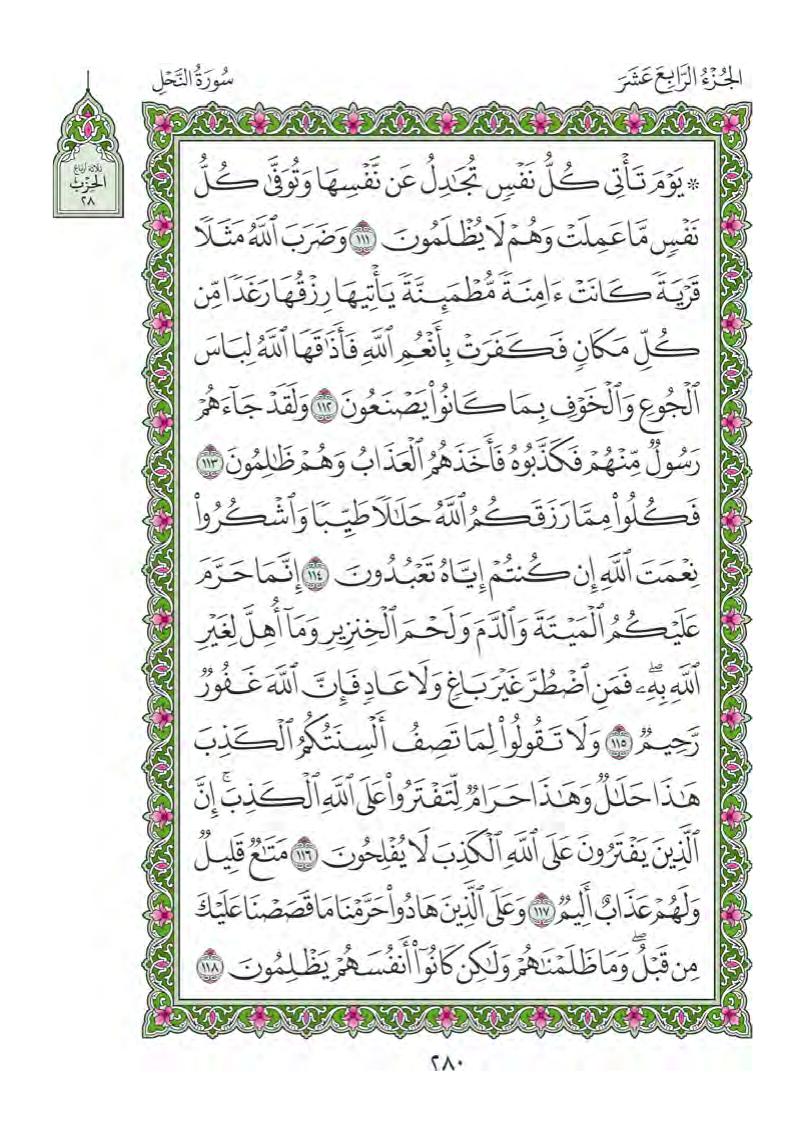 الجُزْءُ الرَّابِعَ عَشَرَ
سُورَةُ النَّحْلِ
ثلاثة أرباع
الحِزْب
٢٨
۞ يَوْمَ تَأْتِي كُلُّ نَفْسٖ تُجَٰدِلُ عَن نَّفْسِهَا وَتُوَفَّىٰ كُلُّ
نَفْسٖ مَّا عَمِلَتْ وَهُمْ لَا يُظْلَمُونَ ١١١ وَضَرَبَ ٱللَّهُ مَثَلٗا
قَرْيَةٗ كَانَتْ ءَامِنَةٗ مُّطْمَئِنَّةٗ يَأْتِيهَا رِزْقُهَا رَغَدٗا مِّن
كُلِّ مَكَانٖ فَكَفَرَتْ بِأَنْعُمِ ٱللَّهِ فَأَذَٰقَهَا ٱللَّهُ لِبَاسَ
ٱلْجُوعِ وَٱلْخَوْفِ بِمَا كَانُوا۟ يَصْنَعُونَ ١١٢ وَلَقَدْ جَآءَهُمْ
رَسُولٞ مِّنْهُمْ فَكَذَّبُوهُ فَأَخَذَهُمُ ٱلْعَذَابُ وَهُمْ ظَٰلِمُونَ ١١٣
فَكُلُوا۟ مِمَّا رَزَقَكُمُ ٱللَّهُ حَلَٰلٗا طَيِّبٗا وَٱشْكُرُوا۟
نِعْمَتَ ٱللَّهِ إِن كُنتُمْ إِيَّاهُ تَعْبُدُونَ ١١٤ إِنَّمَا حَرَّمَ
عَلَيْكُمُ ٱلْمَيْتَةَ وَٱلدَّمَ وَلَحْمَ ٱلْخِنزِيرِ وَمَآ أُهِلَّ لِغَيْرِ
ٱللَّهِ بِهِۦۖ فَمَنِ ٱضْطُرَّ غَيْرَ بَاغٖ وَلَا عَادٖ فَإِنَّ ٱللَّهَ غَفُورٞ
رَّحِيمٞ ١١٥ وَلَا تَقُولُوا۟ لِمَا تَصِفُ أَلْسِنَتُكُمُ ٱلْكَذِبَ
هَٰذَا حَلَٰلٞ وَهَٰذَا حَرَامٞ لِّتَفْتَرُوا۟ عَلَى ٱللَّهِ ٱلْكَذِبَۚ إِنَّ
ٱلَّذِينَ يَفْتَرُونَ عَلَى ٱللَّهِ ٱلْكَذِبَ لَا يُفْلِحُونَ ١١٦ مَتَٰعٞ قَلِيلٞ
وَلَهُمْ عَذَابٌ أَلِيمٞ ١١٧ وَعَلَى ٱلَّذِينَ هَادُوا۟ حَرَّمْنَا مَا قَصَصْنَا عَلَيْكَ
مِن قَبْلُۖ وَمَا ظَلَمْنَٰهُمْ وَلَٰكِن كَانُوٓا۟ أَنفُسَهُمْ يَظْلِمُونَ ١١٨
٢٨٠